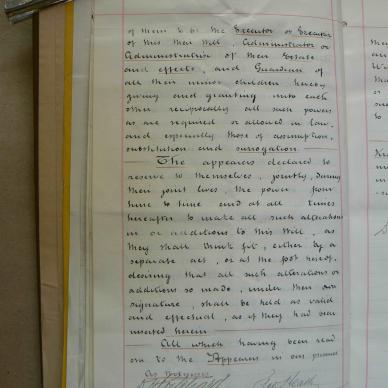 of them to be the Executor or Executor
of this their Will, Administrator or
Administratrix of their Estate
and effects, and Guardian of
all their minor children hereby
giving and granting unto each
other reciprocally all such powers
as are required or allowed in law,
and especially those of assumption,
substitution and surrogation.
The appearers declared to
reserve to themselves, jointly, during
their joint lives, the power from
time to time and at all times
hereafter to make all such alterations
in or additions to this Will, as
they shall think fit, either by a
separate act, or at the foot hereof,
desiring that all such alterations or
additions so made, under their own
signature, shall be held as valid
and effectual, as if they had been
inserted herein.
All which having been read
over to the Appearers in our presence
As Witnesses